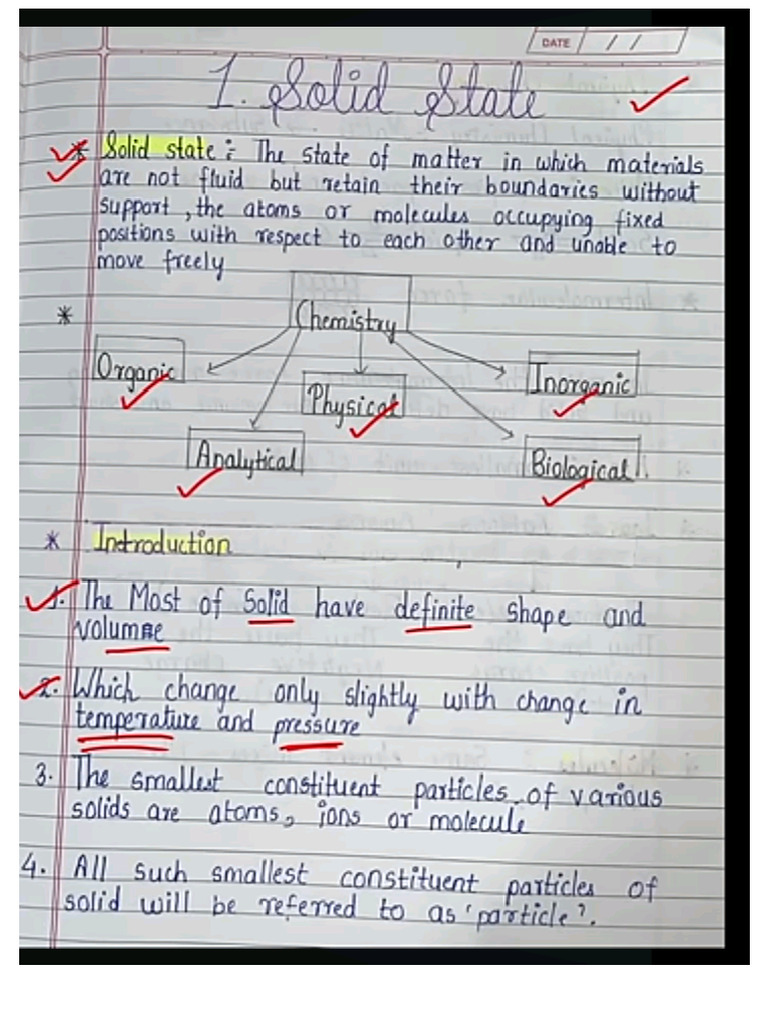 DATE / /
1. Solid State
* Solid state : The state of matter in which materials
are not fluid but retain their boundaries without
support, the atoms or molecules occupying fixed
positions with respect to each other and unable to
move freely
*
Chemistry
Organic
Inorganic
Physical
Analytical
Biological
* Introduction
1. The Most of Solid have definite shape and
volume
2. Which change only slightly with change in
temperature and pressure
3. The smallest constituent particles of various
solids are atoms, ions or molecule
4. All such smallest constituent particles of
solid will be referred to as 'particle'.